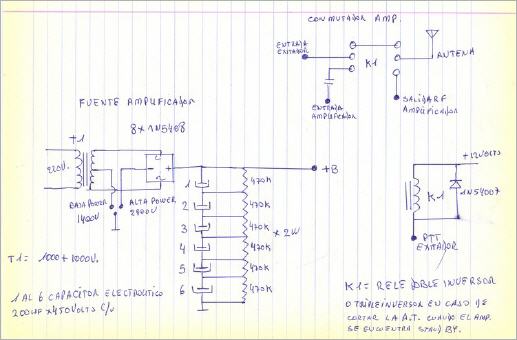 CONMUTADOR AMP.
ENTRADA
EXITADOR
K1
ANTENA
ENTRADA
AMPLIFICADOR
SALIDA RF
AMPLIFICADOR
FUENTE AMPLIFICADOR
8 x 1N5408
T1
220V.
BAJA POWER
1400V
ALTA POWER
2800V
+B
1
2
3
4
5
6
470K
470K
470K
470K
470K
470K
x 2W
+12VOLTS
K1
1N54007
PTT
EXITADOR
T1= 1000+1000V.
1 AL 6 CAPACITOR ELECTROLITICO
200MF x 450VOLTS C/U
K1= RELE DOBLE INVERSOR
O TRIPLE INVERSOR EN CASO DE
CORTAR LA A.T. CUANDO EL AMP.
SE ENCUENTRA STAND BY.